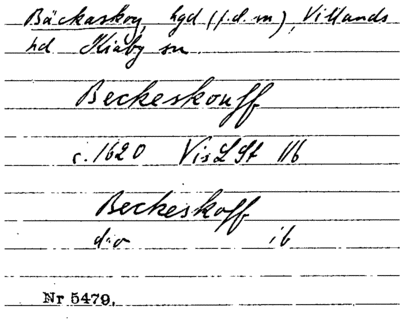 Bäckaskog, hgd (f.d. sn), Villands
hd Kiaby sn
Beckeskouff
c. 1620 VisLSt 11b
Beckeskoff
d:o ib
Nr 5479.